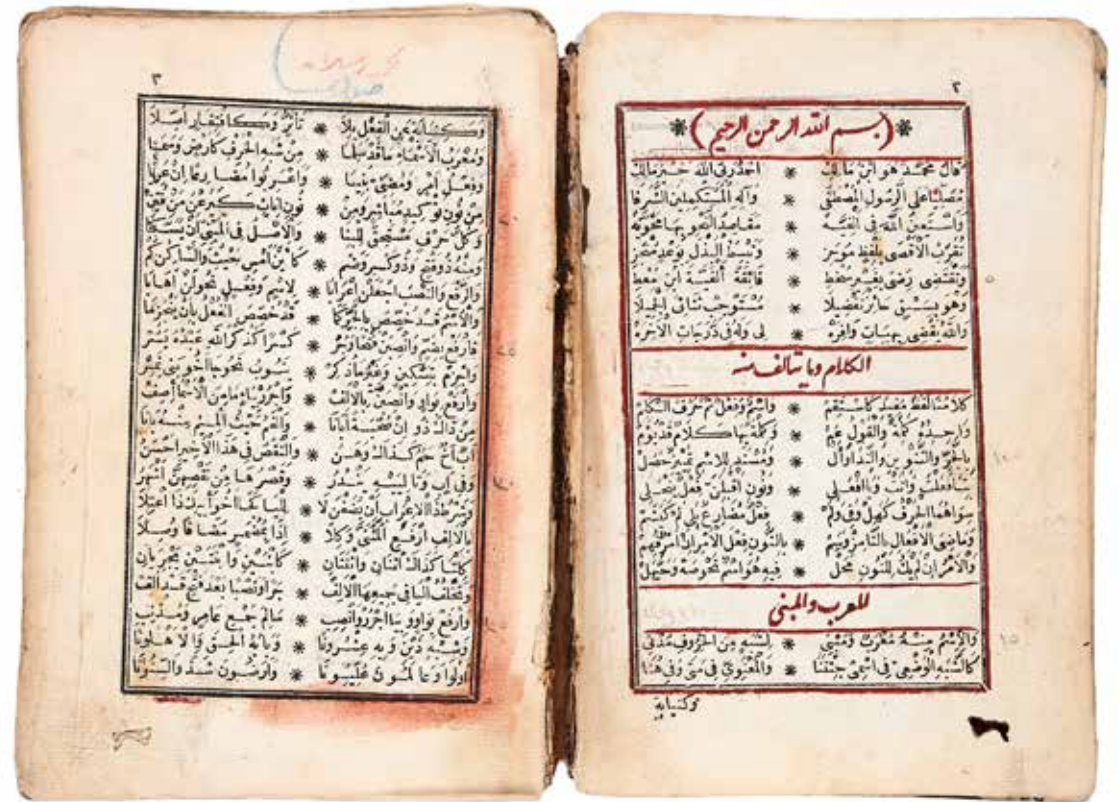 ٢
(بسم الله الرحمن الرحيم)
قال محمد هو ابن مالك * احمد ربي الله خير مالك
مصليا على الرسول المصطفى * وآله المستكملين الشرفا
واستعين الله في الفيه * مقاصد النحو بها محويه
تقرب الاقصى بلفظ موجز * وتبسط البذل بوعد منجز
وتقتضي رضى بغير سخط * فائقة الفية ابن معط
وهو بسبق حائز تفضيلا * مستوجب ثنائي الجميلا
والله يقضي بهبات وافره * لي وله في درجات الآخره
٥
الكلام وما يتألف منه
كلامنا لفظ مفيد كاستقم * واسم وفعل ثم حرف الكلم
واحده كلمة والقول عم * وكلمة بها كلام قد يؤم
بالجر والتنوين والندا وال * ومسند للاسم تمييز حصل
بتا فعلت واتت ويا افعلي * ونون اقبلن فعل ينجلي
سواهما الحرف كهل وفي ولم * فعل مضارع يلي لم كيشم
وماضي الافعال بالتا مز وسم * بالنون فعل الامر ان امر فهم
والامر ان لم يك للنون محل * فيه هو اسم نحو صه وحيهل
١٠
المعرب والمبني
والاسم منه معرب ومبني * لشبه من الحروف مدني
كالشبه الوضعي في اسمي جئتنا * والمعنوي في متى وفي هنا
١٥
وكنيابة
٣
وكنيابة عن الفعل بلا * تأثر وكافتقار اصلا
ومعرب الاسماء ما قد سلما * من شبه الحرف كارض وسما
وفعل امر ومضي بنيا * واعربوا مضارعا ان عريا
من نون توكيد مباشر ومن * نون اناث كيرعن من فتن
وكل حرف مستحق للبنا * والاصل في المبني ان يسكنا
ومنه ذو فتح وذو كسر وضم * كاين امس حيث والساكن كم
والرفع والنصب اجعلن اعرابا * لاسم وفعل نحو لن اهابا
والاسم قد خصص بالجر كما * قد خصص الفعل بان ينجزما
فارفع بضم وانصبن فتحا وجر * كسرا كذكر الله عبده يسر
واجزم بتسكين وغير ما ذكر * ينوب نحو جا اخو بني نمر
وارفع بواو وانصبن بالالف * واجرر بياء ما من الاسما اصف
من ذاك ذو ان صحبة ابانا * والفم حيث الميم منه بانا
اب اخ حم كذاك وهن * والنقص في هذا الاخير احسن
وفي اب وتالييه يندر * وقصرها من نقصهن اشهر
وشرط ذا الاعراب ان يضفن لا * لليا كجا اخو ابيك ذا اعتلا
بالالف ارفع المثنى وكلا * اذا بمضمر مضافا وصلا
كلتا كذاك اثنان واثنتان * كابنين وابنتين يجريان
وتخلف اليا في جميعها الالف * جرا ونصبا بعد فتح قد الف
وارفع بواو وبيا اجرر وانصب * سالم جمع عامر ومذنب
وشبه ذين وبه عشرونا * وبابه الحق والاهلونا
اولو وعالمون عليونا * وارضون شذ والسنونا